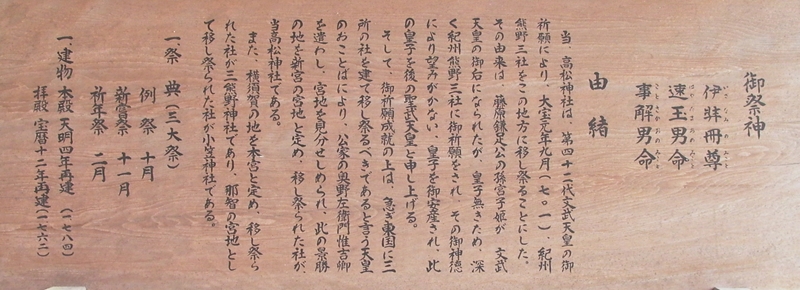 御祭神
伊弉冊尊
速玉男命
事解男命
由緒
当、高松神社は、第四十二代文武天皇の御
祈願により、大宝元年九月(七〇一)、紀州
熊野三社をこの地方に移し祭ることにした。
その由来は 藤原鎌足公の孫宮子姫が 文武
天皇の御后になられたが、皇子無きため、深
く紀州熊野三社に御祈願をされ、その御神徳
により望みがかない、皇子を御安産され、此
の皇子を後の聖武天皇と申し上げる。
そして、御祈願成就の上は、急ぎ東国に三
所の社を建て移し祭るべきであると言う天皇
のおことばにより、公家の奥野左衛門惟吉卿
を遣わし、宮地を見分せしめられ、此の景勝
の地を新宮の宮地と定め、移し祭られた社が、
当高松神社である。
また、横須賀の地を本宮と定め、移し祭ら
れた社が三熊野神社であり、那智の宮地とし
て移し祭られた社が小笠神社である。
一祭典(三大祭)
例祭 十月
新嘗祭 十一月
祈年祭 二月
一建物 本殿 天明四年再建 (一七八四)
拝殿 宝暦十二年再建(一七六二)